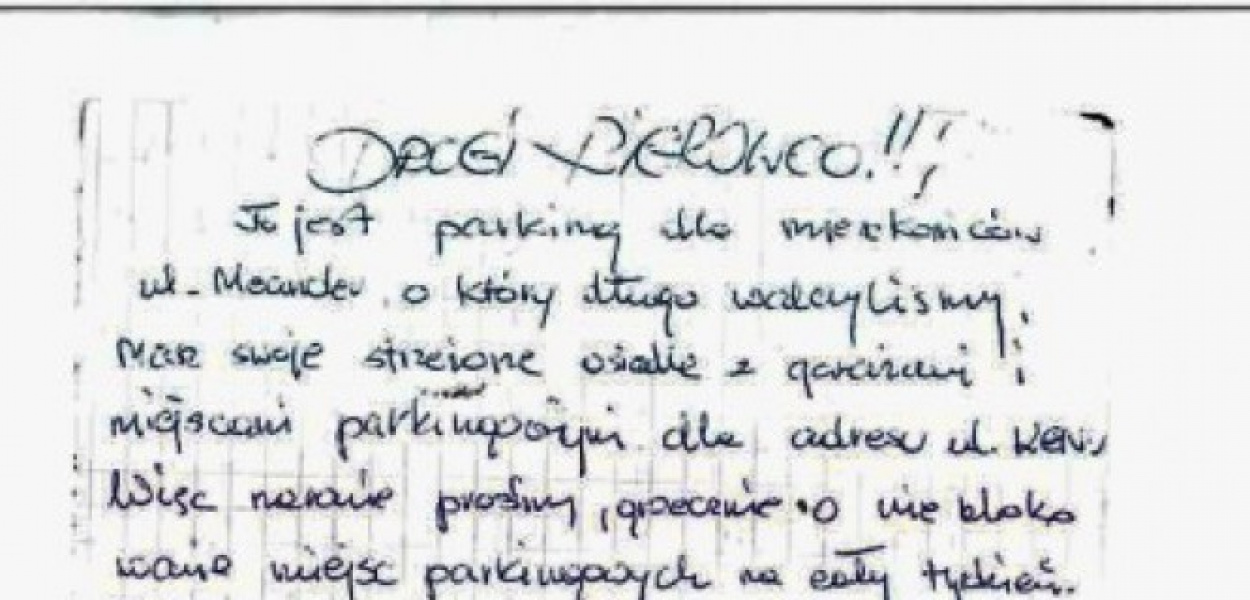 DROGI KIEROWCO!!!
To jest parking dla mieszkańców
ul. Meander, o który długo walczyliśmy.
Masz swoje strzeżone osiedle z garażami i
miejscami parkingowymi dla adresu ul. KEN.
Więc narazie prosimy, grzecznie o nie bloko
wanie miejsc parkingowych na cały tydzień.